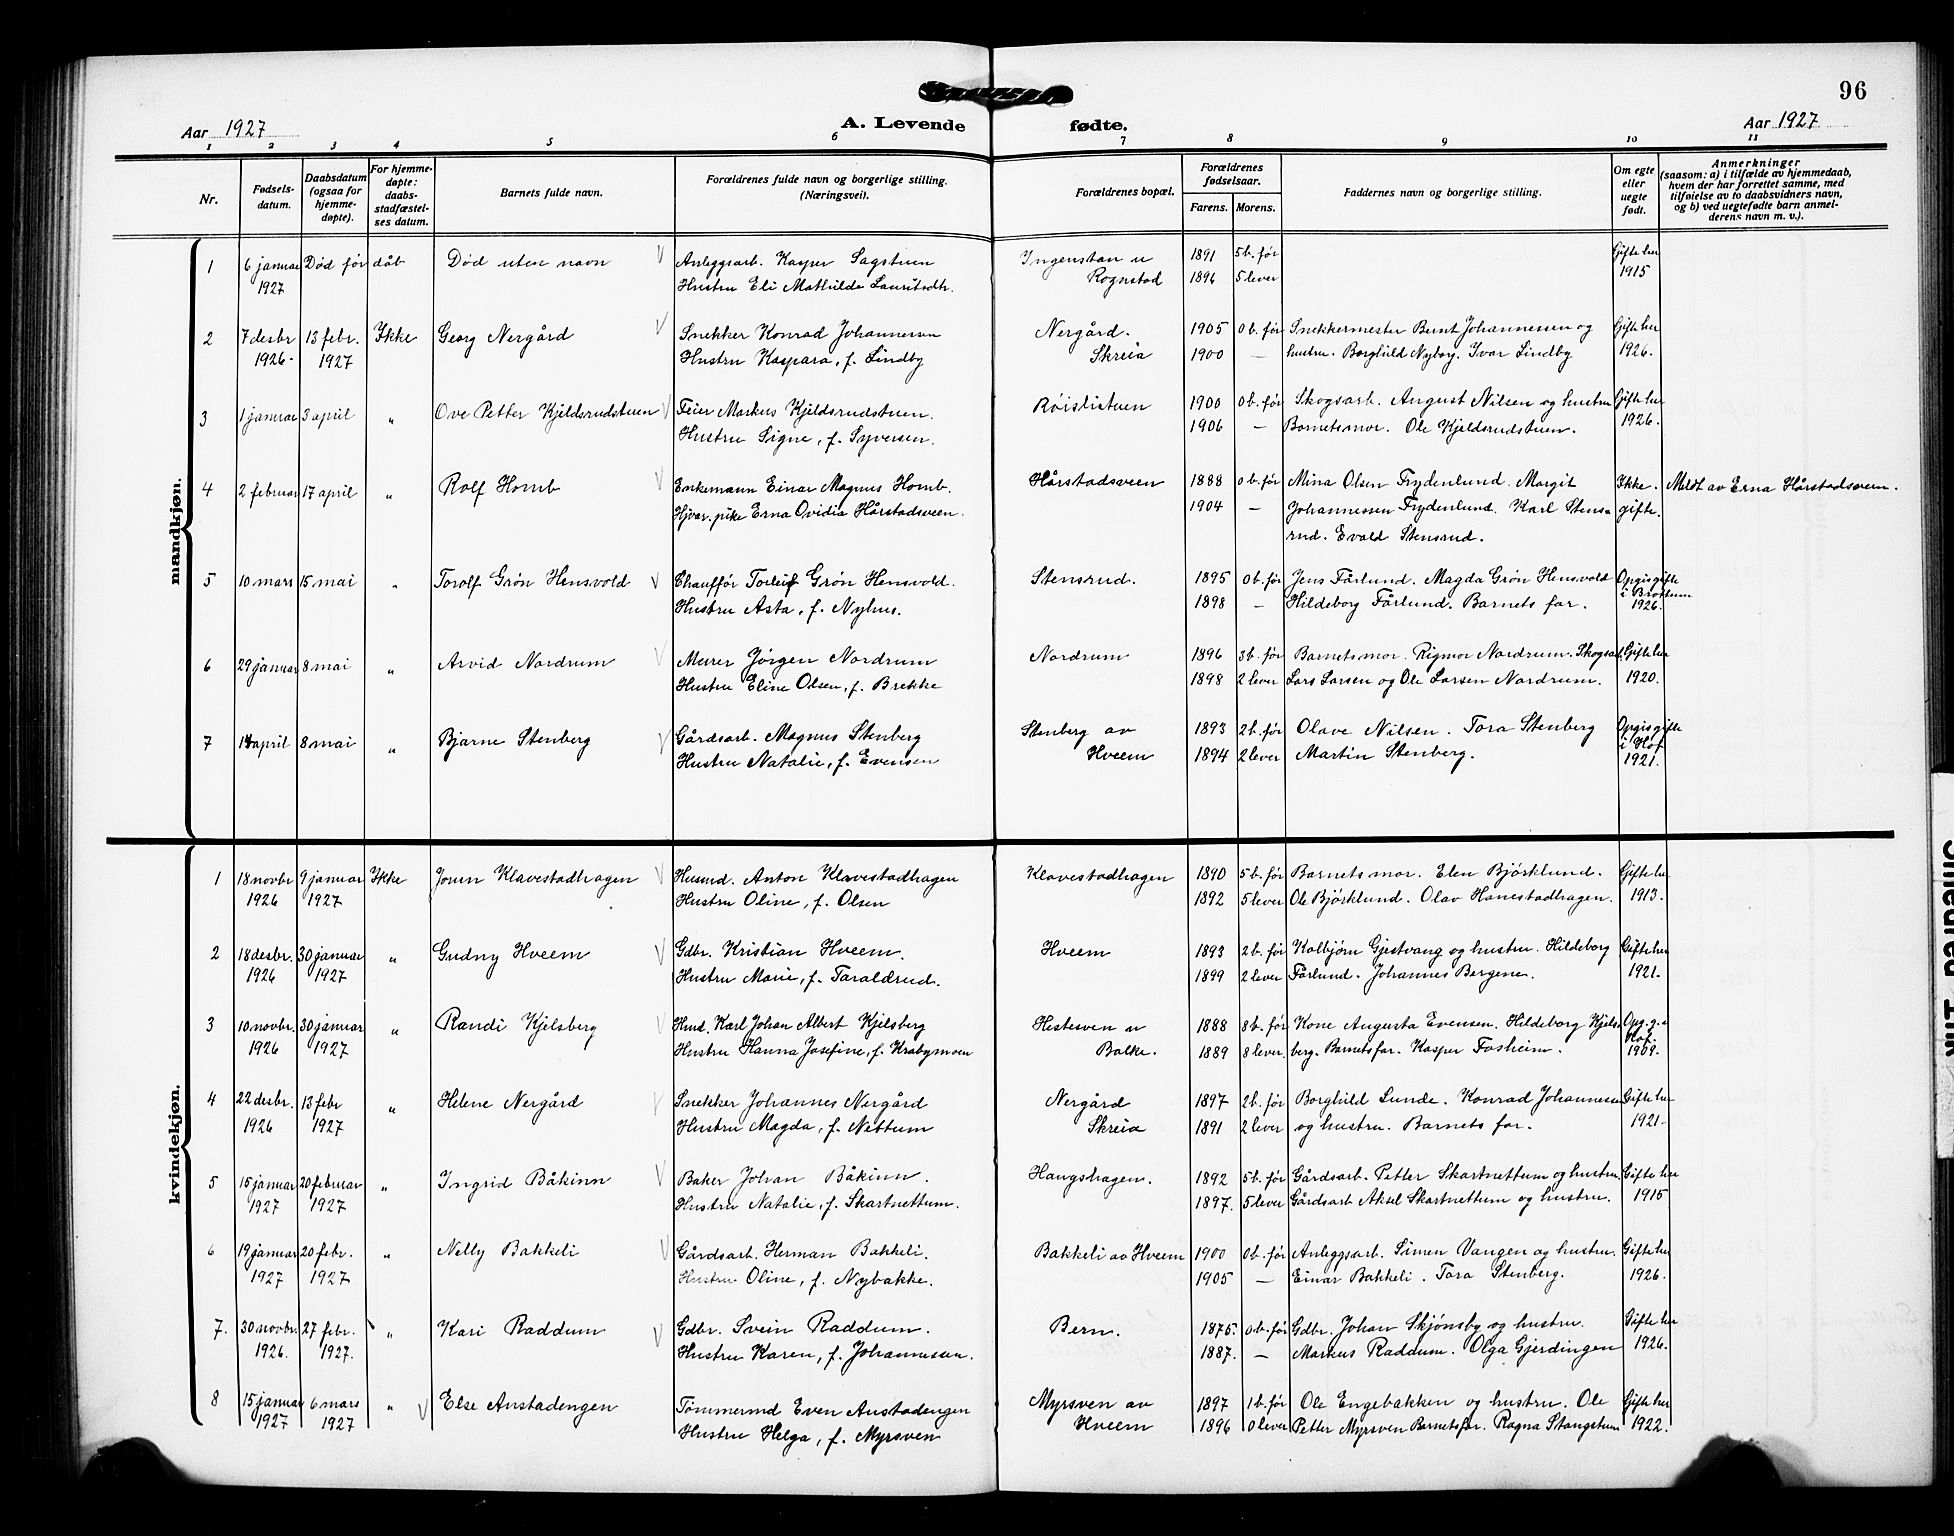 96
Aar 1927 A. Levende fødte. Aar 1927
1 2 3 4 5 6 7 8 9 10 11
Nr. | Fødsels-datum. | Daabsdatum (ogsaa for hjemme-døpte). | For hjemme-døpte: daabs-stadfæstel-ses datum. | Barnets fulde navn. | Forældrenes fulde navn og borgerlige stilling. (Næringsvei). | Forældrenes bopæl. | Forældrenes fødselsaar. Farens. Morens. | Faddernes navn og borgerlige stilling. | Om egte eller uegte født. | Anmerkninger (saasom: a) i tilfælde av hjemmedaab, hvem der har forrettet samme, med tilføielse av to daabsvidners navn, og b) ved uegtefødte barn anmel-derens navn m. v.).
mandkjøn.
1 6 januar Død før dåb Død uten navn Anleggsarb. Kasper Sagstuen Ingenstan u 1891 5 b. før Gifte her
1927 Hustru Eli Mathilde Lauritsdtr. Rognstad 1896 5 lever 1915
2 7 desbr 13 febr. Ikke Georg Nergård Snekker Konrad Johannesen Nergård. 1905 0 b. før Snekkermester Bernt Johannessen og Gifte her
1926- 1927 Hustru Kaspara, f. Lindby Skreia 1900 — hustru. Borghild Nyborg. Ivar Lindby 1926.
3 1 januar 3 april " Ove Petter Kjeldsrudstuen Feier Markus Kjeldsrudstuen. Røislistuen 1900 0 b. før Skogsarb. August Nilsen og hustru Gifte her
Hustru Signe, f. Syversen. 1906 — Barnetsmor. Ole Kjeldsrudstuen. 1926.
4 2 februar 17 april " Rolf Homb Enkemann Einar Magnus Homb. Hårstadsveen 1888 0 b. før Mina Olsen Frydenlund. Margit Ikke. Meldt av Erna Hårstadsveen.
Hjvær. pike Erna Ovidia Hårstadsveen. 1904 — Johannessen Frydenlund. Karl Stens- gifte.
rud. Evald Stensrud.
5 10 mars 15 mai " Torolf Grøn Hensvold Chauffør Torleif Grøn Hensvold. Stensrud. 1895 0 b. før Jens Fårlund. Magda Grøn Hensvold Opgis gifte
Hustru Asta, f. Nyhus. 1898 — Hildeborg Fårlund. Barnets far. i Brøttum 1926.
6 29 januar 8 mai " Arvid Nordrum Murer Jørgen Nordrum Nordrum 1896 3 b. før Barnetsmor. Rigmor Nordrum. Skogsarb. Gifte her
Hustru Eline Olsen, f. Brekke 1898 2 lever Lars Larsen og Ole Larsen Nordrum. 1920.
7 april 8 mai " Bjarne Stenberg Gårdsarb. Magnus Stenberg Stenberg av 1893 2 b. før Olave Nilsen. Tora Stenberg Opgis gifte
Hustru Natalie, f. Evensen Hveem 1894 2 lever Martin Stenberg. i Hof 1921.
kvindekjøn.
1 18 novbr 9 januar Ikke Jorun Klavestadhagen Husmd. Anton Klavestadhagen Klavestadhagen 1890 5 b. før Barnets mor. Elen Bjørklund. Gifte her
1926 1927 Hustru Oline, f. Olsen 1892 5 lever Ole Bjørklund. Olav Hanestadhagen. 1913.
2 18 desbr. 30 januar " Gudny Hveem Gdbr. Kristian Hveem. Hveem 1893 2 b. før Kolbjørn Gjestvang og hustru. Hildeborg Gifte her
1926 1927 Hustru Marie, f. Taraldrud. 1899 2 lever Fårlund. Johannes Bergene. 1921.
3 10 novbr. 30 januar " Randi Kjelsberg Hmd. Karl Johan Albert Kjelsberg Hestesven u 1888 8 b. før Kone Augusta Evensen. Hildeborg Kjels- Opg. g. i
1926 1927 Hustru Hanna Josefine, f. Krabymoen Balke. 1889 8 lever. berg. Barnets far. Kasper Fosheim. Hof. 1909.
4 22 desbr. 13 febr " Helene Nergård Snekker Johannes Nergård Nergård 1897 2 b. før Borghild Lunde. Konrad Johannessen Gifte her
1926 1927 Hustru Magda, f. Nettum Skreia 1891 2 lever og hustru. Barnets far. 1921.
5 15 januar 20 februar " Ingrid Båkinn Baker Johan Båkinn. Haugshagen. 1892 5 b. før Gårdsarb. Petter Skartnettum og hustru. Gifte her
1927 1927 Hustru Natalie, f. Skartnettum. 1897. 5 lever Gårdsarb Aksel Skartnettum og hustru. 1915
6 19 januar 20 febr. " Nelly Bakkeli Gårdsarb. Herman Bakkeli. Bakkeli av Hveem 1900 0 b. før Anleggsarb. Simen Vangen og hustru. Gifte her
1927 1927 Hustru Oline, f. Nybakke. 1905 — Einar Bakkeli. Tora Stenberg. 1926.
7. 30 novbr. 27 febr. " Kari Raddum Gdbr. Svein Raddum. Bern. 1875. 0 b. før Gdbr. Johan Skjønsby og hustru. Gifte her
1926. 1927. Hustru Karen, f. Johannessen. 1887. — Markus Raddum. Olga Gjerdingen 1926.
8 15 januar 6 mars " Else Anstadengen Tømmermd Even Anstadengen Myrsven av 1897 1 b. før Ole Engebakken og hustru. Ole Gifte her
1927 1927 Hustru Helga, f. Myrsven Hveem 1896 0 lever Petter Myrsven Barnetsfar. Ragna Stangstuen 1922.